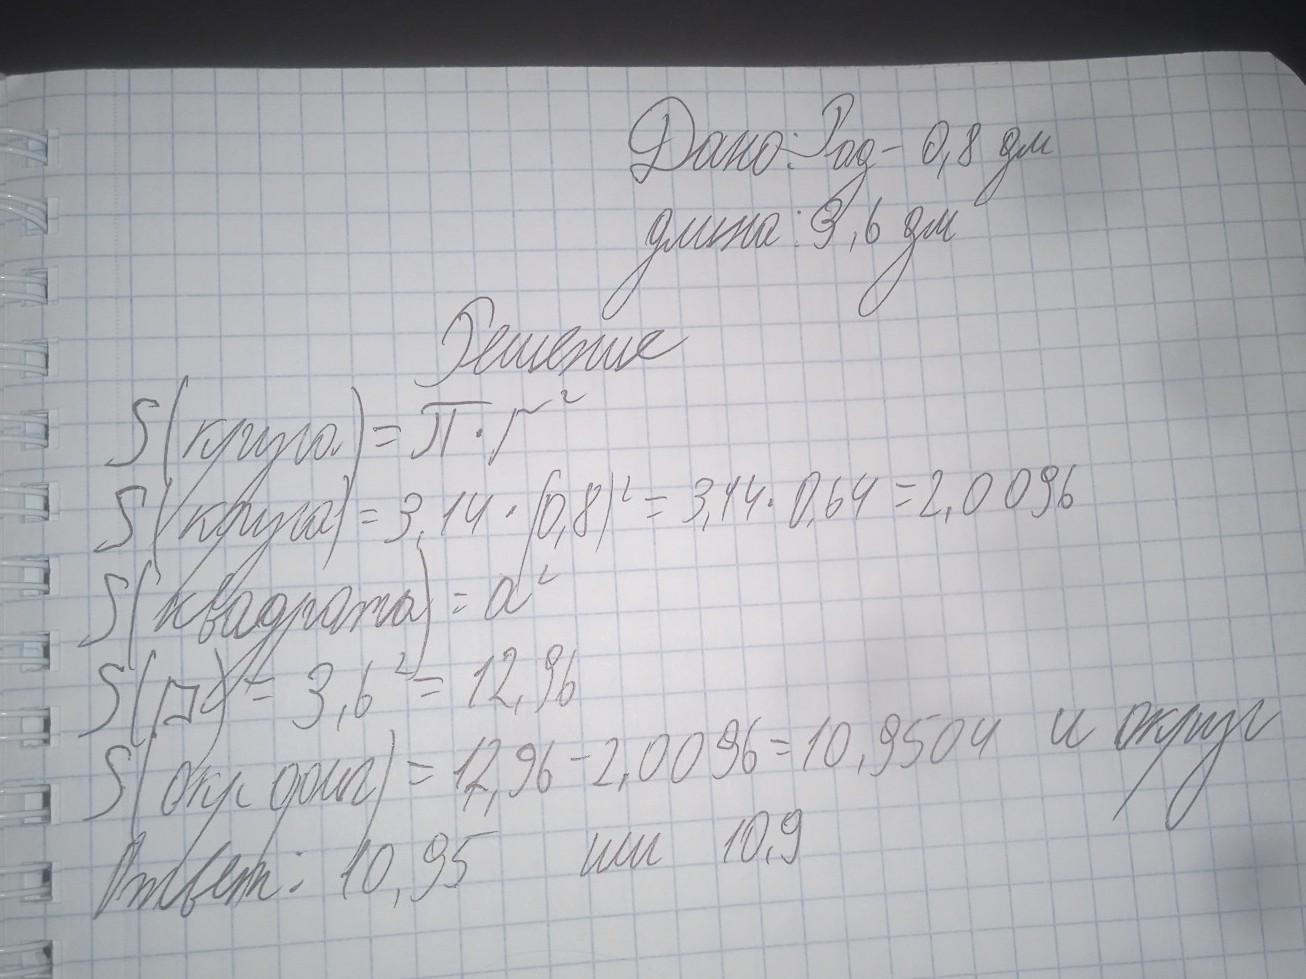 Дано: Рад - 0,8 дм
длина: 3,6 дм
Решение
S(круга) = П · r²
S(круга) = 3,14 · (0,8)² = 3,14 · 0,64 = 2,0096
S(квадрата) = a²
S(□) = 3,6² = 12,96
S( ) = 12,96 - 2,0096 = 10,9504 и округ
Ответ: 10,95 или 10,9